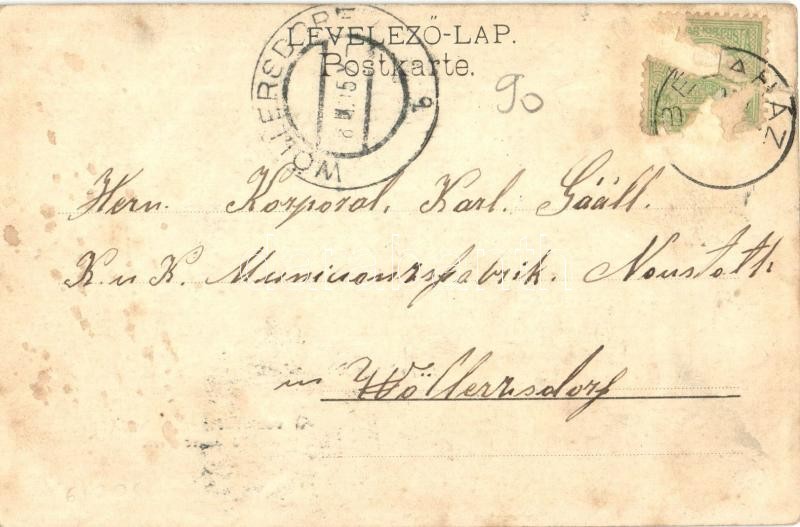 LEVELEZŐ-LAP.
Postkarte.
WÖLLERSDORF
90
Hern. Korporal. Karl. Gááll.
K. u K. Municionzsfabrik. Neustath
in Wöllerrsdorf